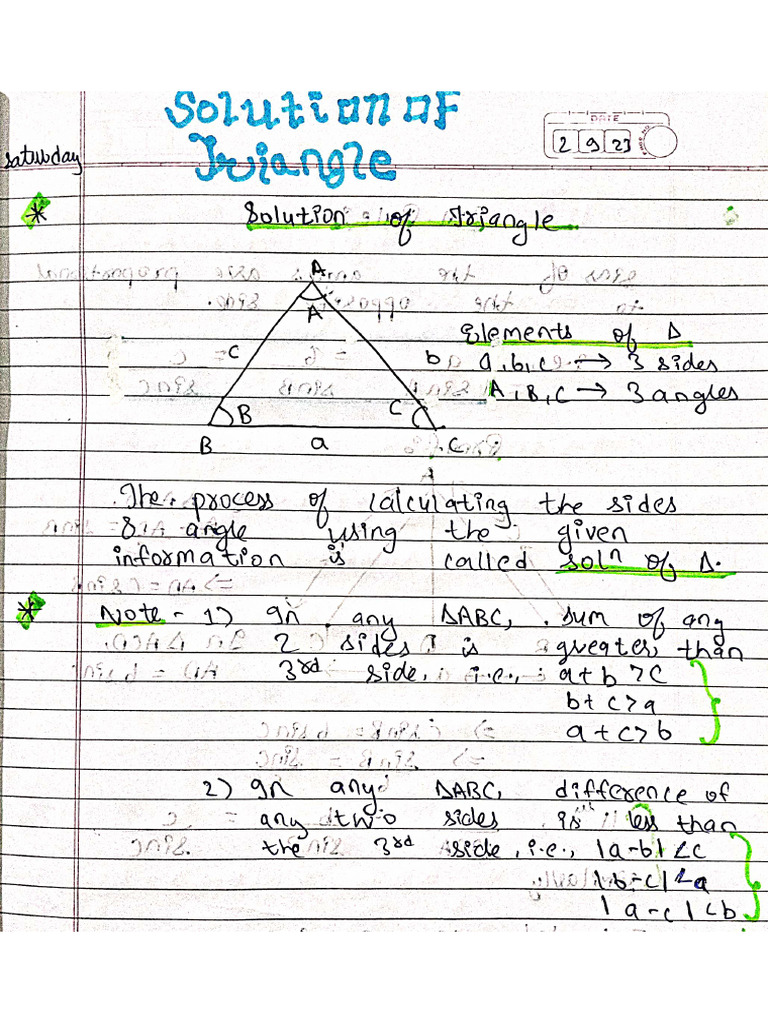 Solution of
Triangle
DATE
2 9 23
Saturday
* Solution of triangle
A
A
Elements of Δ
c b a, b, c → 3 sides
A, B, C → 3 angles
B C
B a C
The process of calculating the sides
& angle using the given
information is called solⁿ of Δ.
* Note - 1) In any ΔABC, sum of any
2 sides is greater than
3rd side, i.e., a + b > c
b + c > a
a + c > b
2) In any ΔABC, difference of
any two sides is less than
the 3rd side, i.e., |a-b| < c
|b-c| < a
|a-c| < b